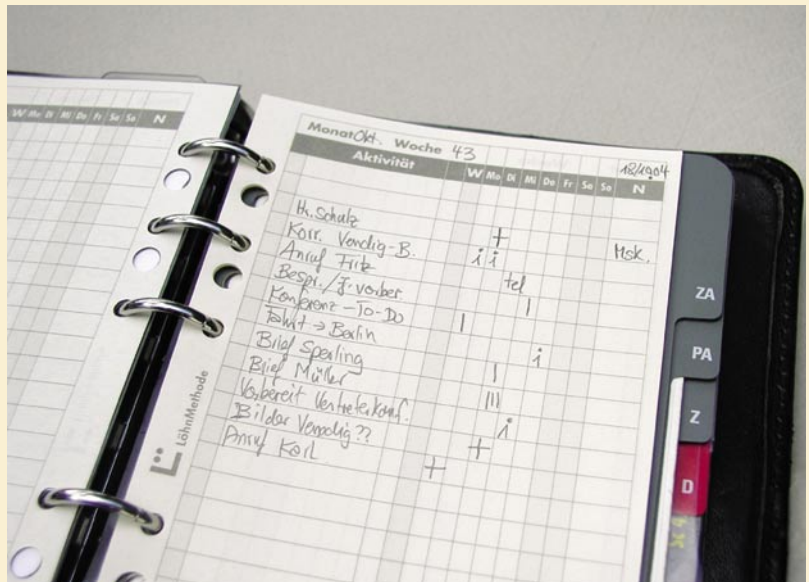 W Mo Di Mi Do Fr Sa So N
Monat Okt. Woche 43
Aktivität W Mo Di Mi Do Fr Sa So N
Hr. Schulz +
Korr. Vendig-B. i i Msk.
Anruf Fritz tel
Bespr./F. vorber. |
Konferenz-To-Do |
Fahrt → Berlin
Brief Sperling i
Brief Müller |
Vorbereit Vertreterkonf. |||
Bilder Venedig?? i
Anruf Karl +
+
LöhnMethode
ZA
PA
Z
D